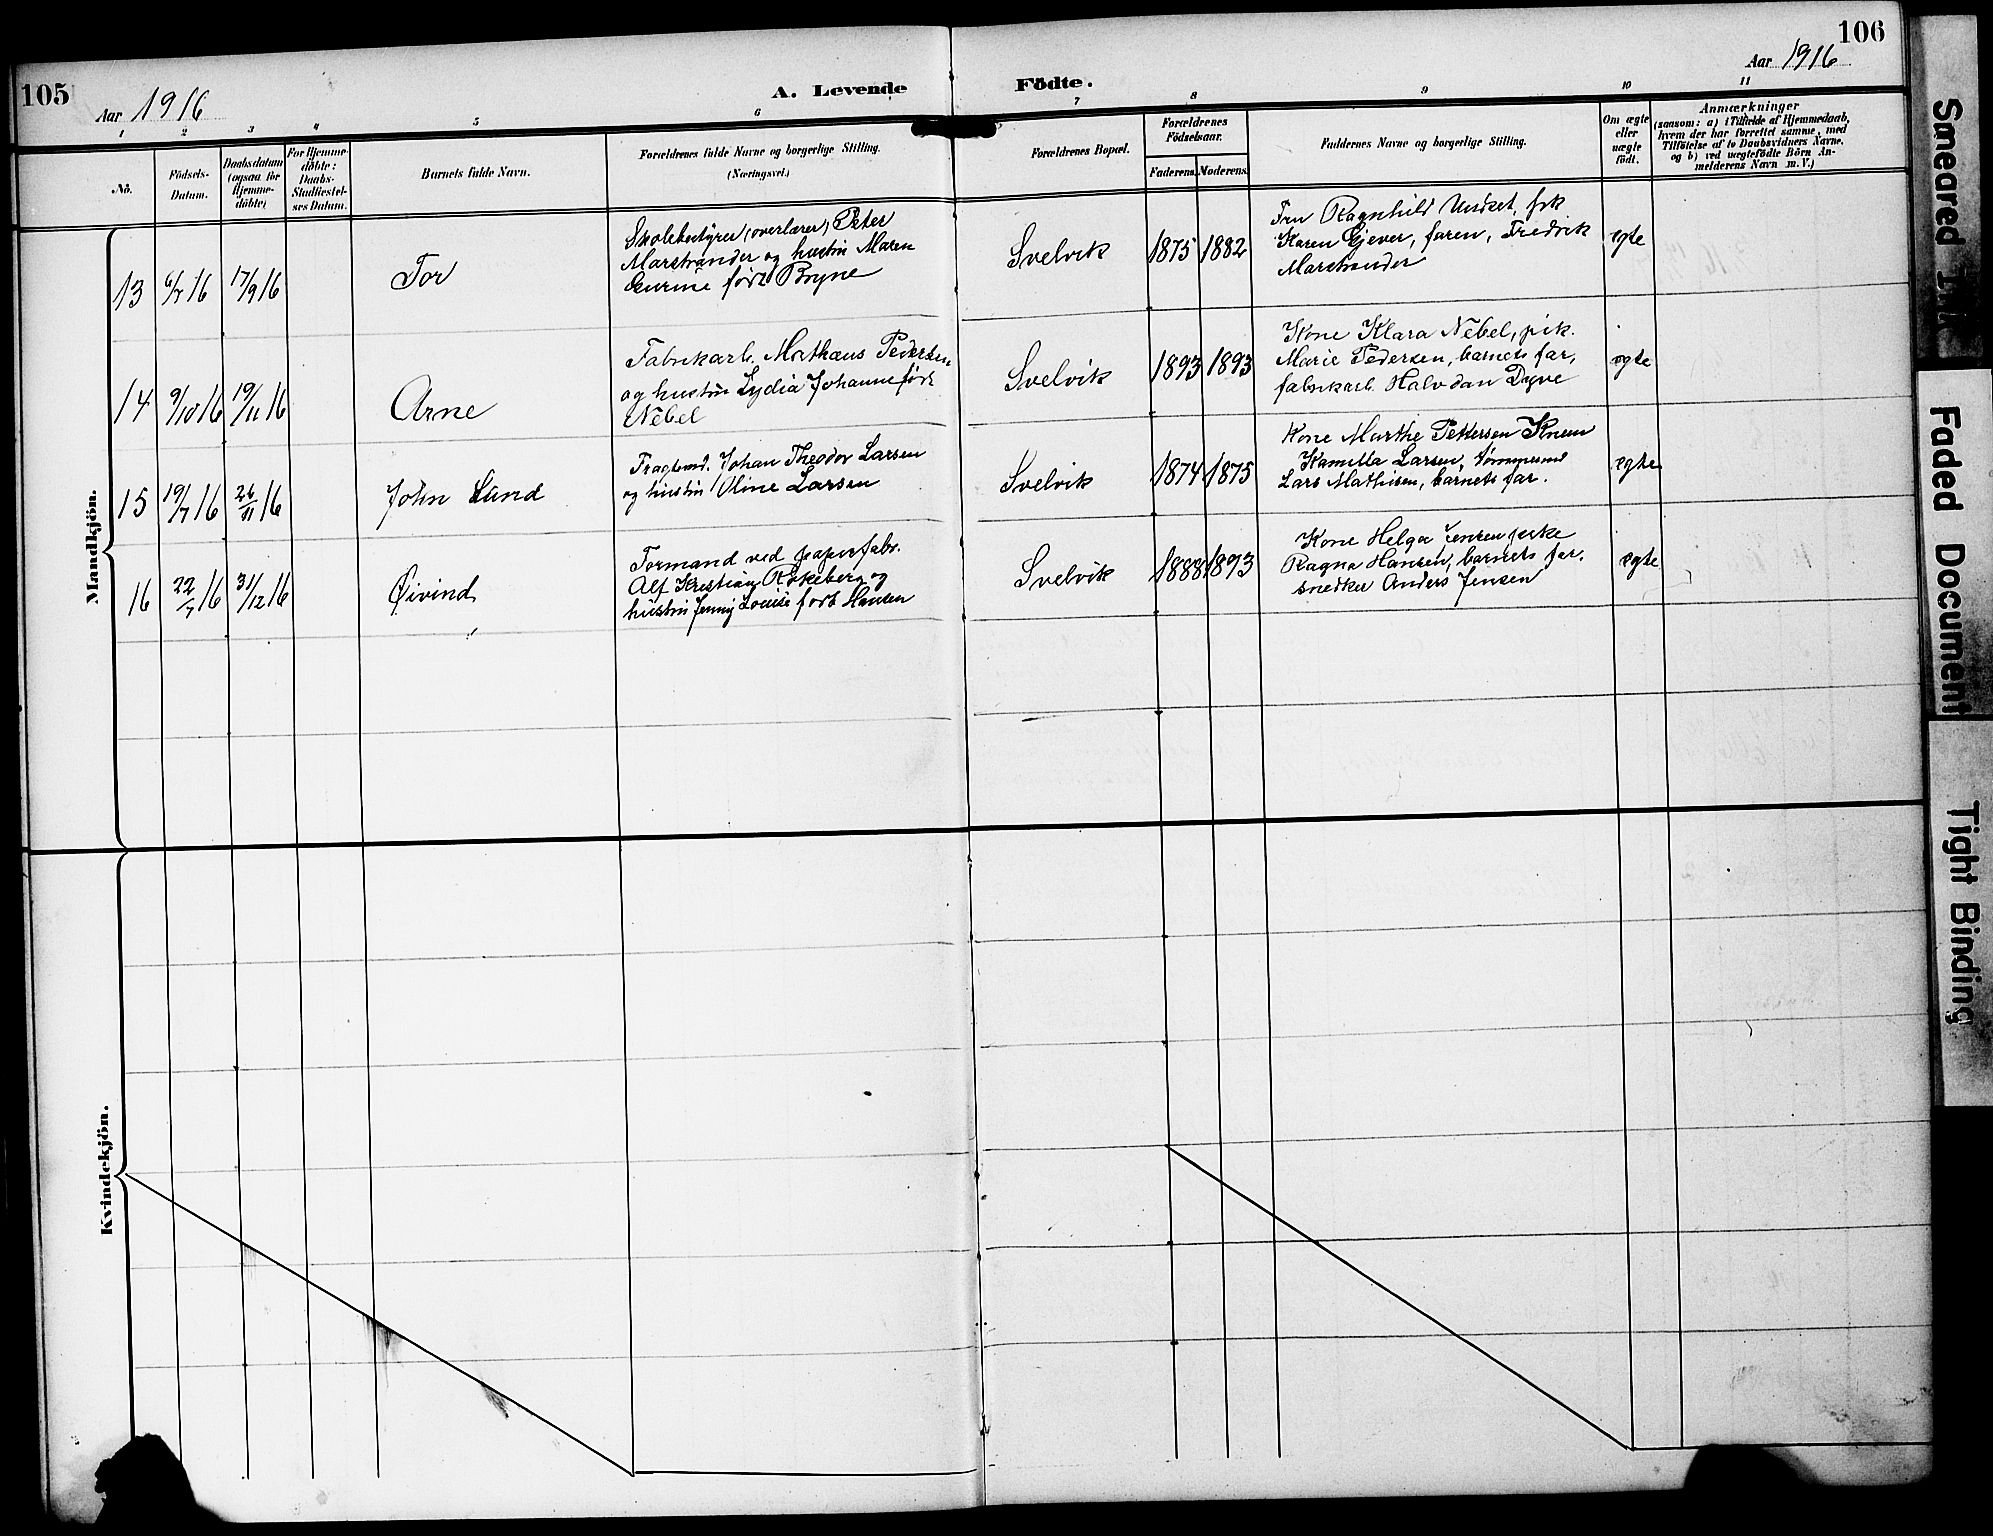 105
Aar 1916
A. Levende Födte.
Aar 1916
106
1 2 3 4 5 6 7 8 9 10 11
No.
Födsels-
Datum.
Daabsdatum
(ogsaa for
Hjemme-
döbte)
For Hjemme-
döbte:
Daabs-
Stadfæstel-
ses Datum.
Barnets fulde Navn.
Forældrenes fulde Navne og borgerlige Stilling.
(Næringsvei.)
Forældrenes Bopæl.
Forældrenes
Födselsaar.
Faderens. Moderens.
Faddernes Navne og borgerlige Stilling.
Om ægte
eller
uægte
födt.
Anmærkninger
(saasom: a) i Tilfælde af Hjemmedaab,
hvem der har forrettet samme, med
Tilföielse af to Daabsvidners Navne,
og b) ved uægtefödte Börn An-
melderens Navn m. V.)
Mandkjön.
13 6/7 16 17/9 16 Tor
Skolebestyrer (overlærer) Peter
Marstrander og hustru Maren
Gurine født Bryne
Svelvik 1875 1882
Fru Ragnhild Undset, frk
Karen Gjever, faren, Fredrik
Marstrander
ægte
14 9/10 16 19/11 16 Arne
Fabrikarb. Mathæus Pedersen
og hustru Lydia Johanne født
Nebel
Svelvik 1893 1893
Kone Klara Nebel, pik.
Marie Pedersen, barnets far,
fabrikarb. Halvdan Dyve
ægte
15 19/7 16 26/11 16 John Lund
Fragtemd. Johan Theodor Larsen
og hustru Oline Larsen
Svelvik 1874 1875
Kone Marthe Pettersen Konen
Kamilla Larsen, Tømmermd
Lars Mathisen, barnets far.
ægte
16 22/7 16 31/12 16 Øivind
Formand ved papirfabr.
Alf Kristian Røkeberg og
hustru Jenny Louise født Hansen
Svelvik 1888 1893
Kone Helga Jensen, pike
Ragna Hansen, barnets far.
snedker Anders Jensen
ægte
Kvindekjön.
Smeared Ink
Faded Document
Tight Binding